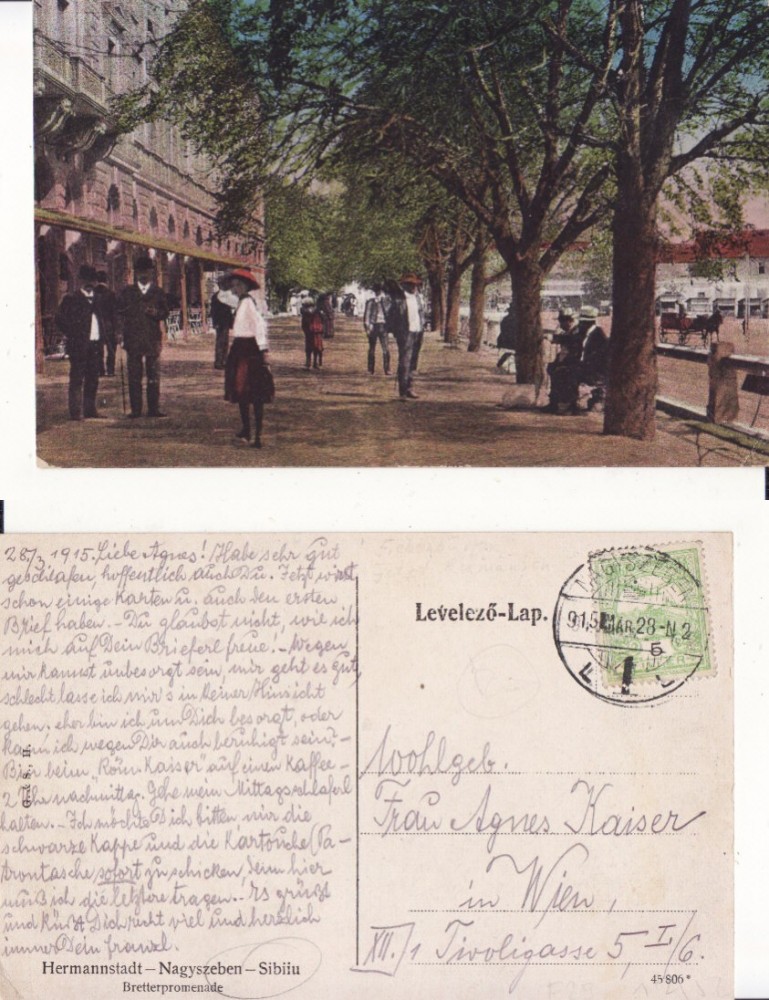 28./3. 1915. Liebe Agnes! Habe sehr gut
geschlafen, hoffentlich auch Du. Jetzt wirst
schon einige Karten u. auch den ersten
Brief haben. – Du glaubst nicht, wie ich
mich auf Dein Brieferl freue! – Wegen
mir kannst unbesorgt sein, mir geht es gut,
schlecht lasse ich mir's in keiner Hinsicht
gehen, eher bin ich um Dich besorgt, oder
kann ich wegen Dir auch beruhigt sein? –
Bin beim „Röm. Kaiser" auf einen Kaffee –
2 Uhr nachmittag. Gehe mein Mittagsschlaferl
halten. – Ich möchte Dich bitten mir die
schwarze Kappe und die Kartouche (Pa-
trontasche) sofort zu schicken, denn hier
muß ich die letztere tragen. – Es grüßt
und küßt Dich recht viel und herzlich
immer Dein Franzl.
Hermannstadt – Nagyszeben – Sibiiu
Bretterpromenade
Levelező-Lap.
NAGYSZEBEN
915 MÁR. 28 - N. 2
Wohlgeb.
Frau Agnes Kaiser
in Wien,
XII./1 Tivoligasse 5, I./6.
45806*